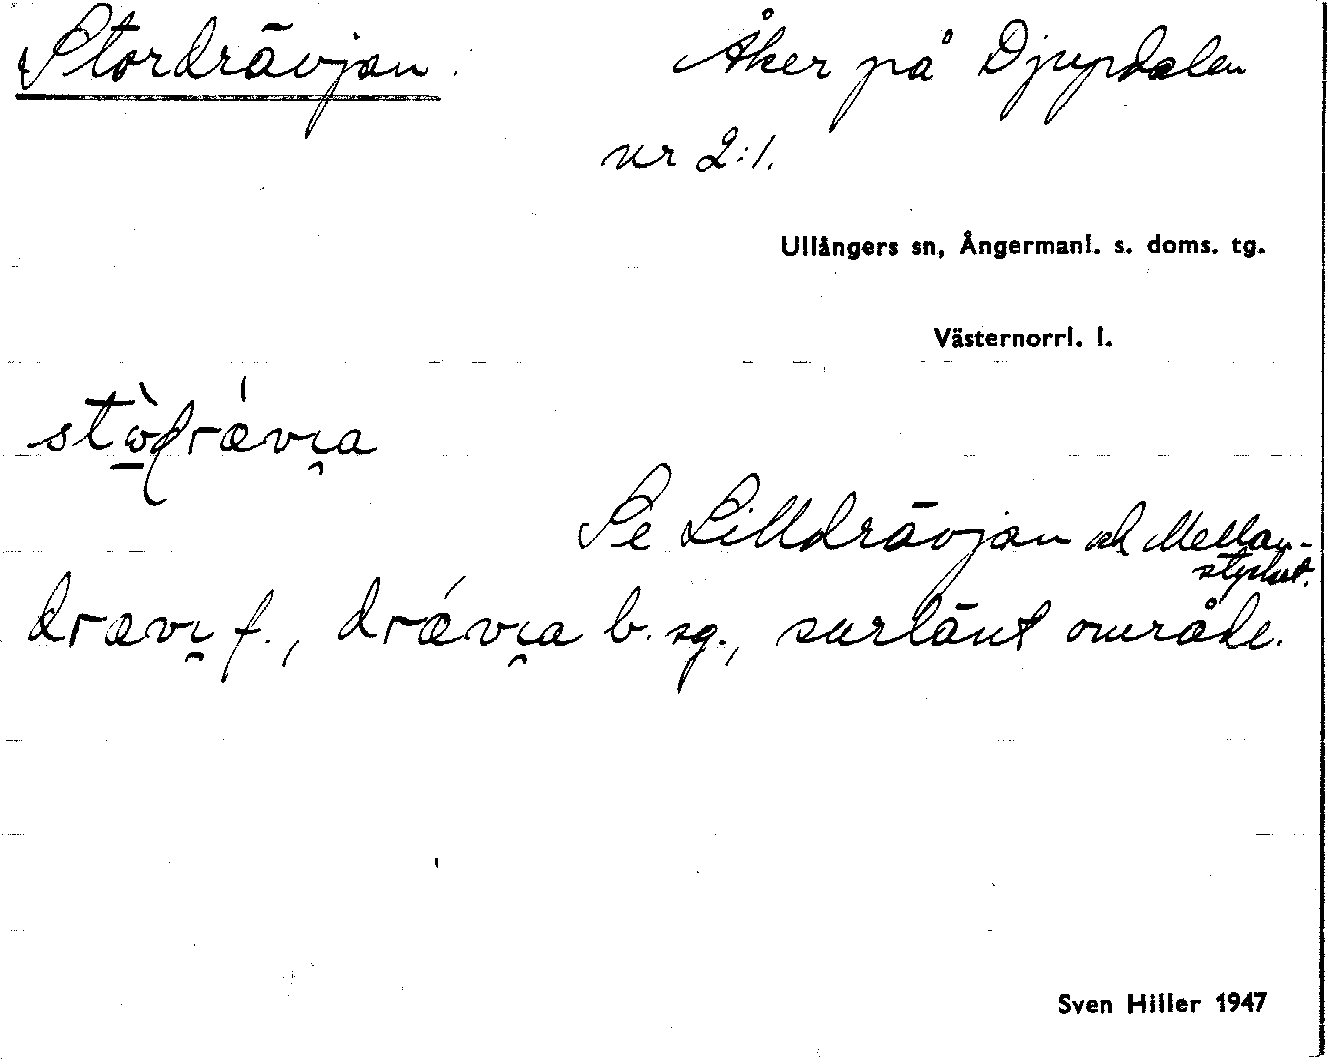 Stordrävjan. Åker på Djupdalen
nr 2:1.
Ullångers sn, Ångermanl. s. doms. tg.
Västernorrl. l.
stòdrǽvi̯a
Se Lilldrävjan och Mellan-
stycket.
drævi̯ f., drǽvi̯a b. sg., surlänt område.
Sven Hiller 1947